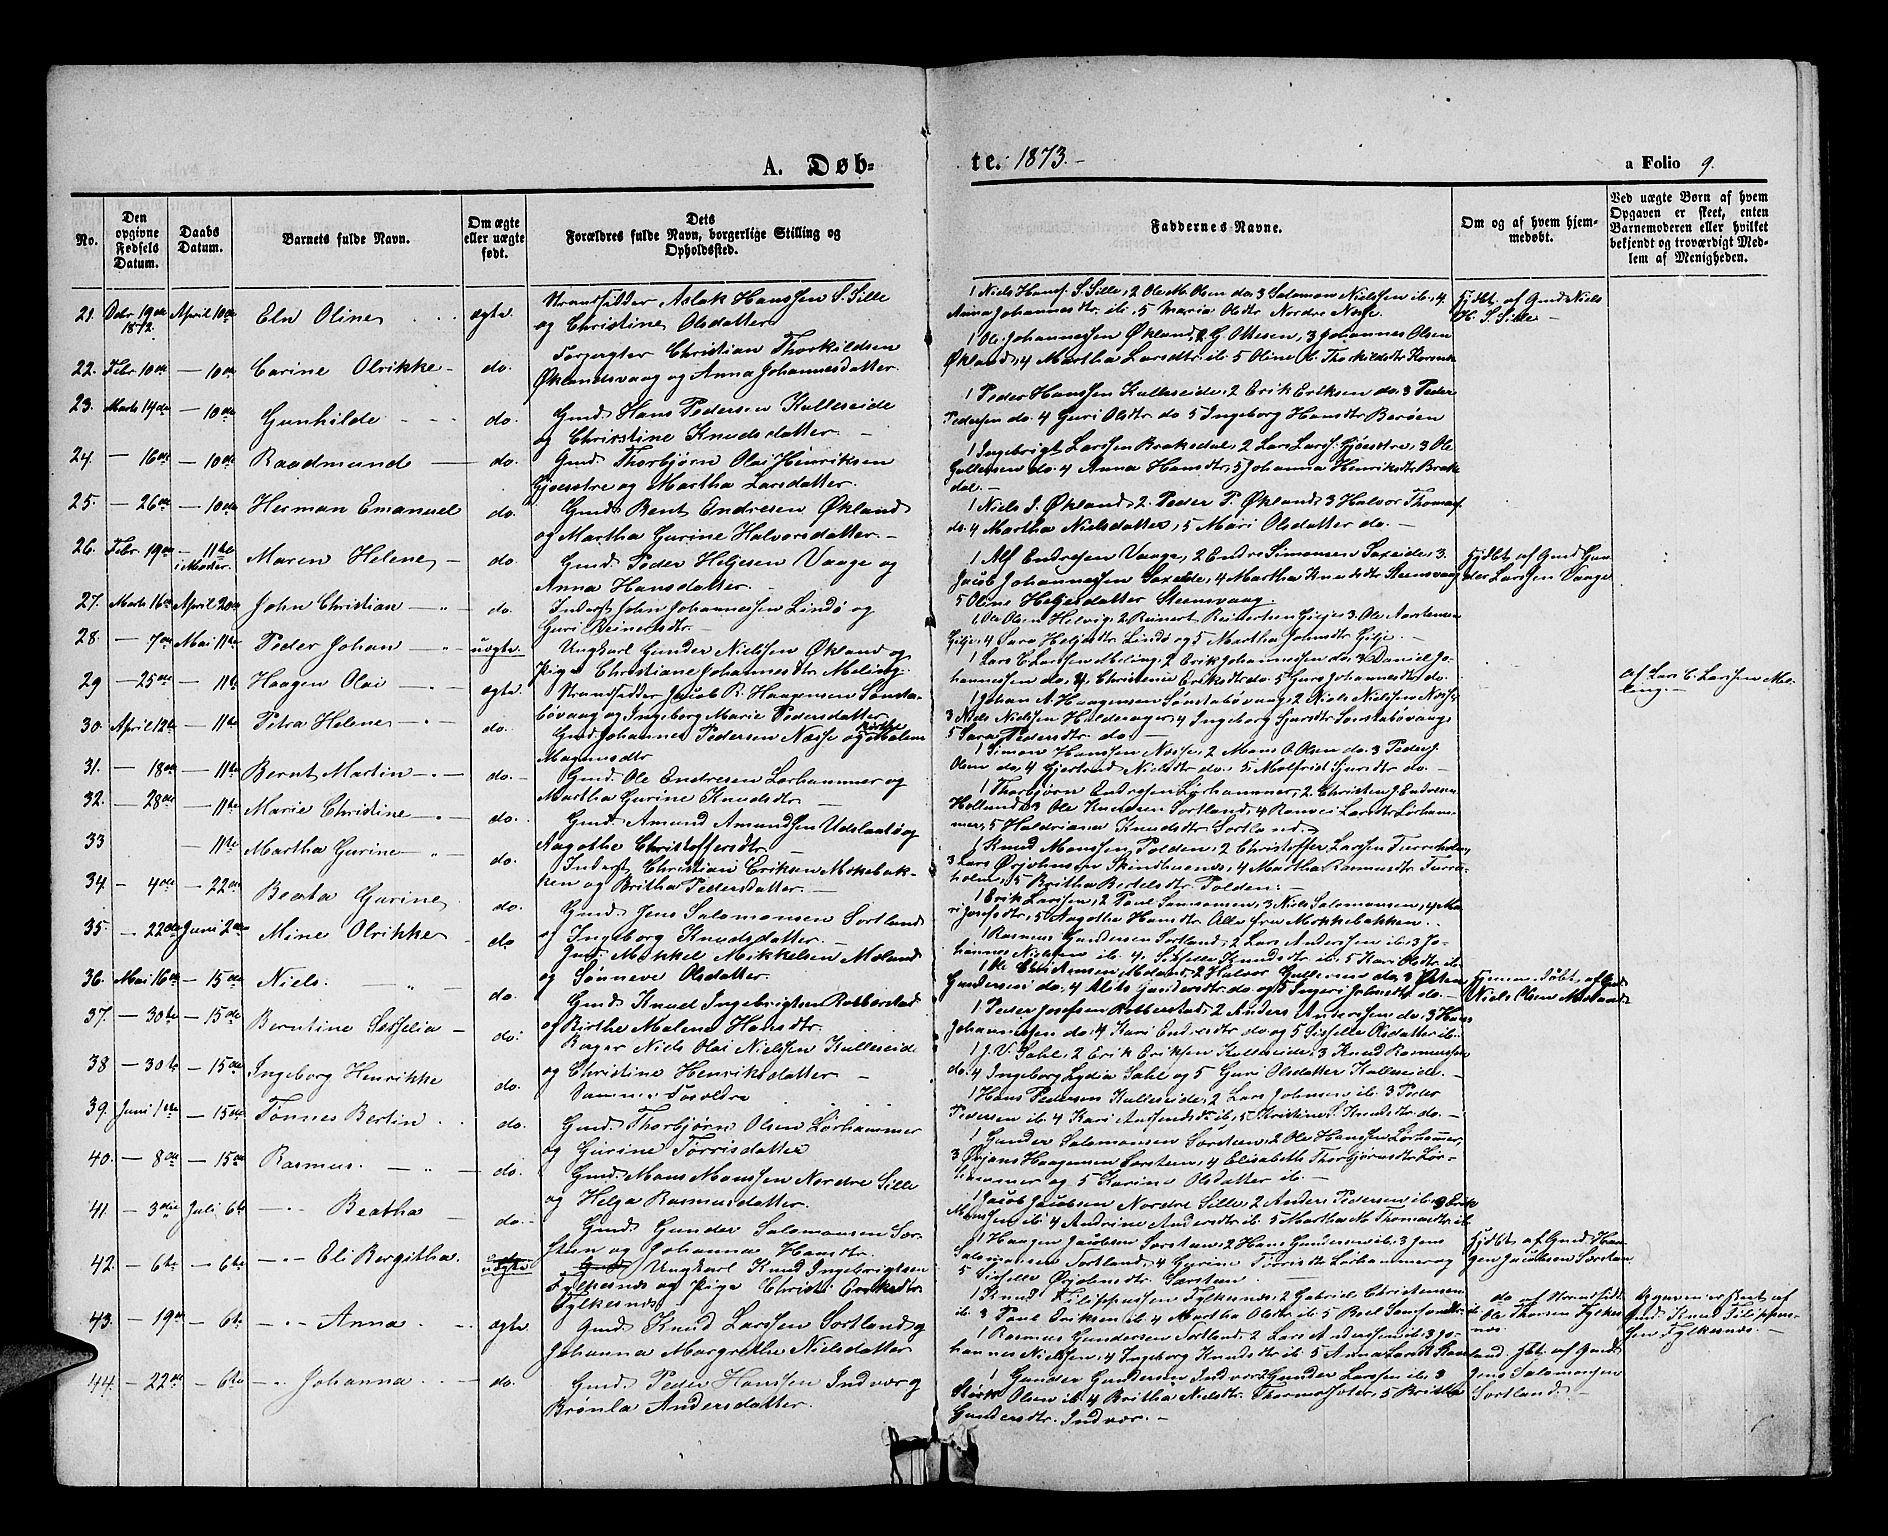 A. Døb-
te. 1873.-
a Folio 9.
No.
Den opgivne Fødsels Datum.
Daabs Datum.
Barnets fulde Navn.
Om ægte eller uægte født.
Dets Forældres fulde Navn, borgerlige Stilling og Opholdssted.
Faddernes Navne.
Om og af hvem hjemmedøbt.
Ved uægte Børn af hvem Opgaven er skeet, enten Barnemoderen eller hvilket bekjendt og troværdigt Medlem af Menigheden.
21. Decbr 19de 1872. April 10de Eln Oline ægte. Strandsidder Aslak Hanssen S. Sille
og Christine Olsdatter
1 Niels Hans. S. Sille, 2 Ole M. Olsen do 3 Salomon Nielssen ib. 4
Anna Johannesdtr ib, 5 Maria Olsdtr Nordre Næsse.
Hjdbt. af Gmd Niels
H. S. Sille
22. Febr 10de — 10de Carine Olrikke do. Forpagter Christian Thorkildsen
Øklandsvaag og Anna Johannesdatter.
1 Ole Johannessen Økland, 2 G. Ottesen, 3 Johannes Olsen
Økland, 4 Martha Larsdtr ib. 5 Oline O. Thorkildsdtr
23. Marts 14de — 10de Gunhilde do. Gmd. Hans Pedersen Kulleseide
og Christine Knudsdatter.
1 Peder Hanssen Kulleseide, 2 Erik Eriksen do. 3 Peder
Pedersen do. 4 Guri Olsdtr do 5 Ingeborg Hansdtr Berøen
24. — 16de — 10de Raadmund do. Gmd. Thorbjørn Olai Henriksen
Gjøsstre og Martha Larsdatter.
1 Ingebrigt Larssen Brakedal, 2 Lars Larss. Gjøsstre, 3 Ole
Gullersen do. 4 Anna Hansdtr, 5 Johanna Henriksdtr Brake
dal.
25. — 26de — 10de Herman Emanuel do. Gmd. Bent Endresen Økland
og Martha Gurine Halvorsdatter.
1 Niels J. Økland, 2 Peder P. Økland 3 Halvor Thomas.
do. 4 Martha Nielsdatter, 5 Mari Olsdatter do.
26. Febr. 19de — 11te i Moster. Maren Helene do. Gmd. Peder Helgesen Vaage og
Anna Hansdatter.
1 Alf Endresen Vaage, 2 Endre Simonsen Saxeide, 3.
Jacob Johannessen Saxeide, 4 Martha Knudsdtr Steensvaag
5 Oline Helgesdatter Steensvaag.
Hjdbt. af Gmd Gun
der Larssen Vaage
27. Marts 16de April 20de John Christian do. Inderst John Johannessen Lindø og
Guri Reinertsdtr.
1 Ole Olsen Helvig, 2 Reinert Reinertsen Gilje 3. Ole Aartensen
Gilje, 4 Sara Helgesdtr Lindø og 5 Martha Johnsdtr Gilje.
28. — 7de Mai 11te Peder Johan uægte. Ungkarl Gunder Nielssen Økland og
Pige Christiane Johannesdtr Meling.
1 Lars C. Larssen Meling, 2 Erik Johannessen do. 3 Daniel Jo-
hannessen do, 4. Christense Eriksdtr do. 5 Guro Johannesdtr do.
af Lars C. Larssen Me-
ling.
29 — 25de — 11te Haagen Olai ægte. Strandsidder Jacob R. Haagensen Sønsta-
bøvaag og Ingeborg Marie Pedersdatter
1 Johan A. Haagensen Sønstabøvaag, 2 Niels Nielssen Næsse
3 Niels Nielssen Huldesager, 4 Ingeborg Sjursdtr Sønstabøvaag
5 Sara Pedersdtr do.
30. April 12te — 11te Petra Helene do. Gmd Johannes Pedersen Næsse og Birthe Malene
Magnusdtr
1 Simon Hanssen Næsse, 2 Mons O. Olsen do. 3 Peder J.
Olsen do, 4 Gjertrud Nielsdtr do. 5 Malfrid Sjursdtr do.
31. — 18de — 11te Bernt Martin do. Gmd. Ole Endresen Lørhammer og
Martha Gurine Knudsdtr
1 Thorbjørn Endresen Lørhammer, 2 Christen J. Endresen
Holland, 3 Ole Knudsen Sortland, 4 Ranvei Larsdtr Lørham-
mer, 5 Haldriane Knudsdtr Sortland.
32. — 28de — 11te Marie Christine do. Gmd. Amund Amundsen Udslaat og
Aagothe Christoffersdtr.
1 Knud Monssen Folden, 2 Christoffer Larssen Furreholm,
3 Lars Ørjohnsen Skimthuene, 4 Martha Rasmusdtr Furre-
holm, 5 Britha Bertelsdtr. Folden.
33 — 11te Martha Gurine do. Inderst Christian Eriksen Mokebak-
ken og Britha Pedersdatter.
1 Erik Larssen, 2 Paul Samsonsen, 3 Niels Salomonsen, 4 Ma-
ri Josefsdtr, 5 Aagothe Hansdtr Alle fra Mokkebakken.
34. — 4de — 22de Beata Gurine do. Gmd. Jens Salomonsen Sortland
og Ingeborg Knudsdatter.
1 Rasmus Gundersen Sortland, 2 Lars Anderssen ib. 3 Jo-
hannes Nielssen ib. 4. Sissele Knudsdtr ib. 5 Kari Olsdtr ib.
35. — 22de Juni 2den Mine Olrikke do Gmd. Mikkel Mikkelsen Moland
og Sønneve Olsdatter.
1 Ole Christensen Moland, 2 Halvor Gullersen do, 3 Østen
Gundersen do, 4 Alis Gundersdtr do og 5 Ingeri Johnsdtr do.
36. Mai 16de — 15de Niels. do. Gmd. Knud Ingebrigtsen Robberstad
og Birthe Malene Hansdtr.
1 Peder Josefsen Robberstad, 2 Anders Andersen do. 3 Hans
Johannessen do. 4 Kari Endresdtr do og 5 Sissele Olsdatter ib.
Hjemmedøbt af Gmd
Niels Olsen Moland
37. — 30te — 15de Berntine Sesselia do. Bager Niels Olai Nielssen Kulleseide
og Christine Henriksdatter
1 J. V. Sahl, 2 Erik Eriksen Kulleseide, 3 Knud Rasmussen
do. 4 Ingeborg Lydia Sahl og 5 Guri Olsdatter Kulleseide.
38 — 30te — 15de Ingeborg Henrikke do. Samme Foreldre
1 Hans Pedersen Kulleseide, 2 Lars Johnsen ib. 3 Peder
Pedersen ib. 4 Kari Amundsdtr ib, 5 Kristine Knudsdtr do.
39. Juni 1ste — 15de Tønnes Bertin do. Gmd. Thorbjørn Olsen Lørhammer
og Gurine Tørrisdatter
1 Gunder Salomonsen Sørsteen, 2 Ole Hanssen Lørhammer,
3 Ørjans Haagensen Sørsteen, 4 Elisabeth Thorbjørnsdtr Lør-
hammer og 5 Karine Olsdatter ib.
40. — 8de — 15de Rasmus. do. Gmd. Mons Monssen Nordre Sille
og Helga Rasmusdatter.
1 Jacob Jacobsen Nordre Sille, 2 Anders Pedersen ib. 3 Erik
Monssen ib. 4 Andrine Andersdtr ib. 5 Martha M. Thomasdtr ib.
41. — 3die Juli 6te Beatha do. Gmd. Gunder Salomonsen Sør-
steen og Johanna Hansdtr.
1 Haagen Jacobsen Sørsteen, 2 Hans Gundersen ib. 3 Jens
Salomonsen Sortland, 4 Gurine Tørrisdtr Lørhammer og
5 Sissele Ørjohnsdtr. Sørsteen.
Hjdbt. af Gmd. Haa-
gen Jacobsen Sørsteen
42. — 6te — 6te Eli Bergitha. uægte Ungkarl Knud Ingebrigtsen
Fylkesnes og Pige Christi Eriksdtr.
Fylkesnes
1 Knud Filippussen Fylkesnes, 2 Gabriel Christensen
ib. 3 Paul Eriksen ib. 4 Martha Olsdtr ib. 5 Boel Samsonsdtr.
do af Normsidd.
Ole Thorsen Fylkes-
nes
Opgaven er skeet af
Gmd. Knud Filippus-
sen Fylkesnes.
43. — 19de — 6te Anna ægte Gmd. Knud Larssen Sortland og
Johanna Margrethe Nielsdatter
1 Rasmus Gundersen Sortland, 2 Lars Anderssen ib. 3 Jo-
hannes Nielssen, 4 Ingeborg Knudsdtr ib. 5 Anna Larsdtr
Jens Salomonsen
Sortland
44. — 22de — 6te Johanna do. Gmd. Peder Hanssen Indvær og
Brønla Andersdatter.
1 Gunder Gundersen Indvær 2 Gunder Larssen ib. 3
Størk Olsen ib. 4 Britha Nielsdtr. 5 Britha
Gundersdtr. Indvær.